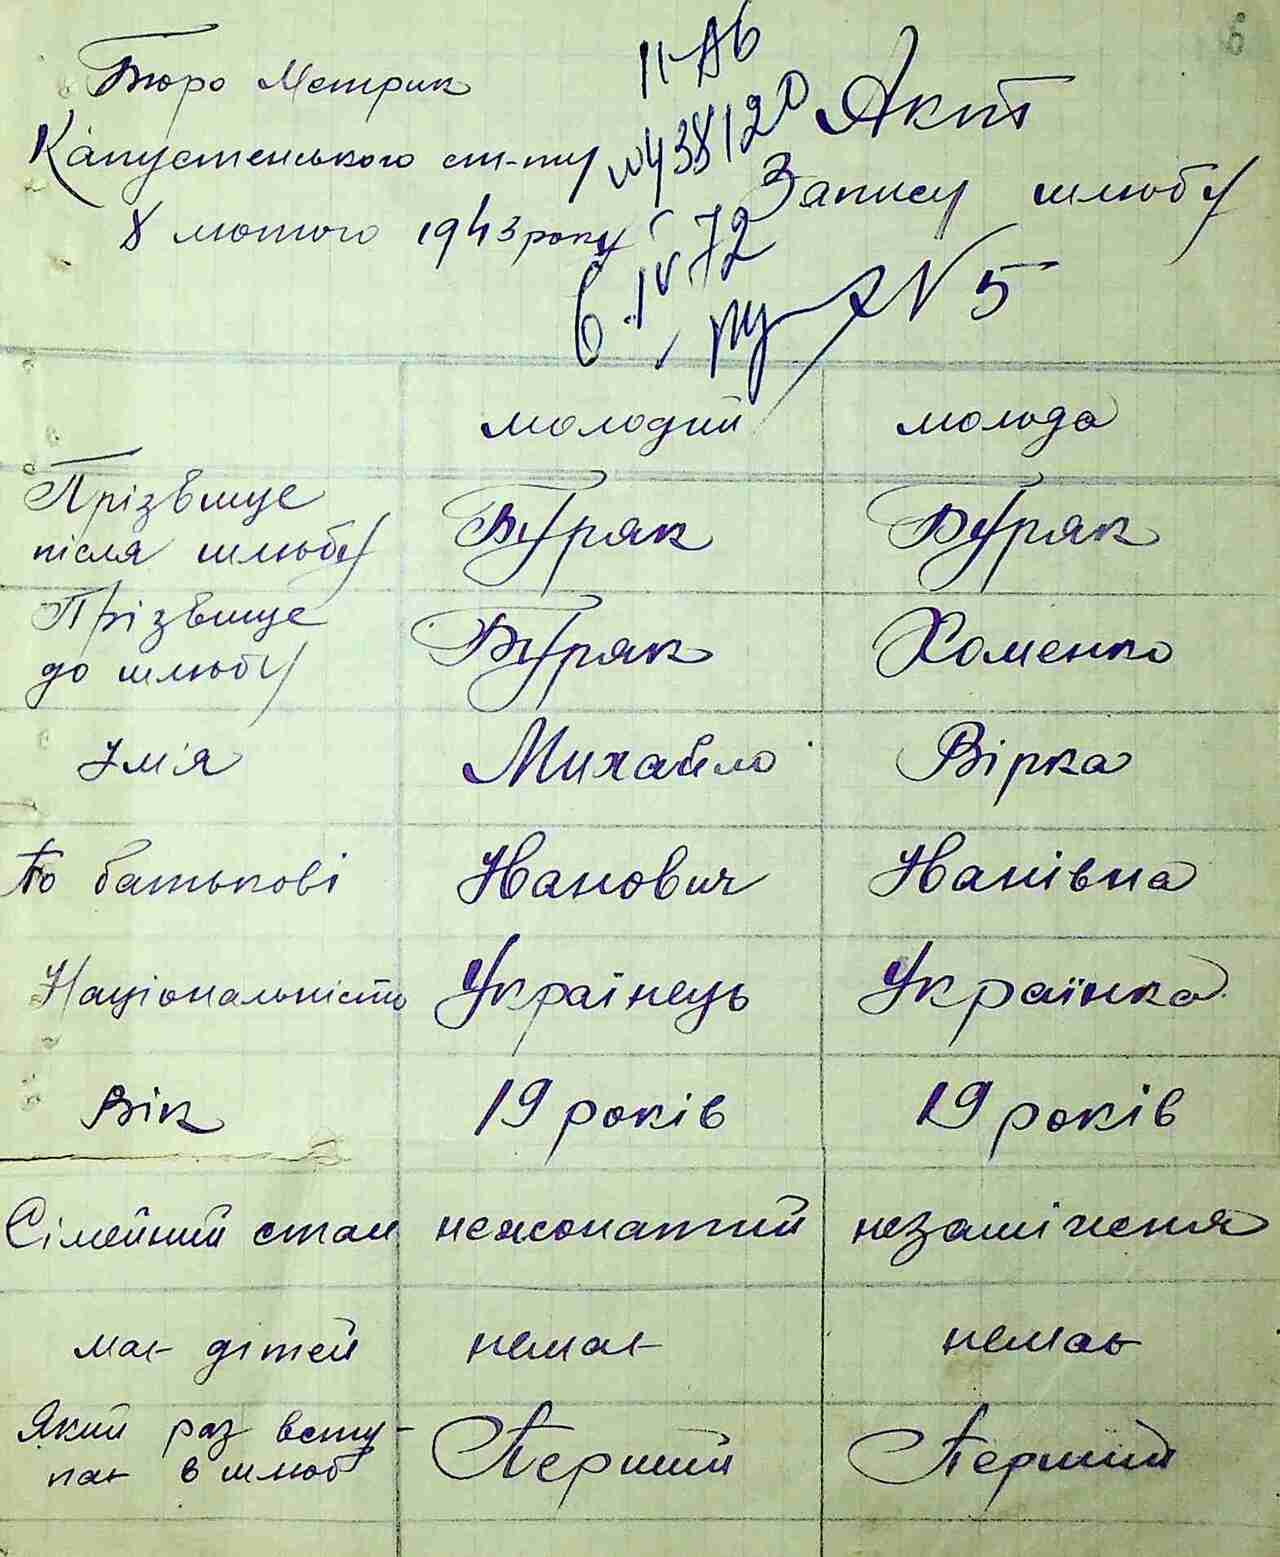 6
Бюро Метрик
Капустенського ст-ту
8 лютого 1943 року
II-АБ
№438120
6.IV.72
Акт
Запису шлюбу
№ 5
молодий молода
Прізвище після шлюбу Буряк Буряк
Прізвище до шлюбу Буряк Хоменко
Імя Михайло Вірка
По батькові Іванович Іванівна
Національність Українець Українка
Вік 19 років 19 років
Сімейний стан нежонатий незаміжня
має дітей немає немає
Який раз вступає в шлюб Перший Перший